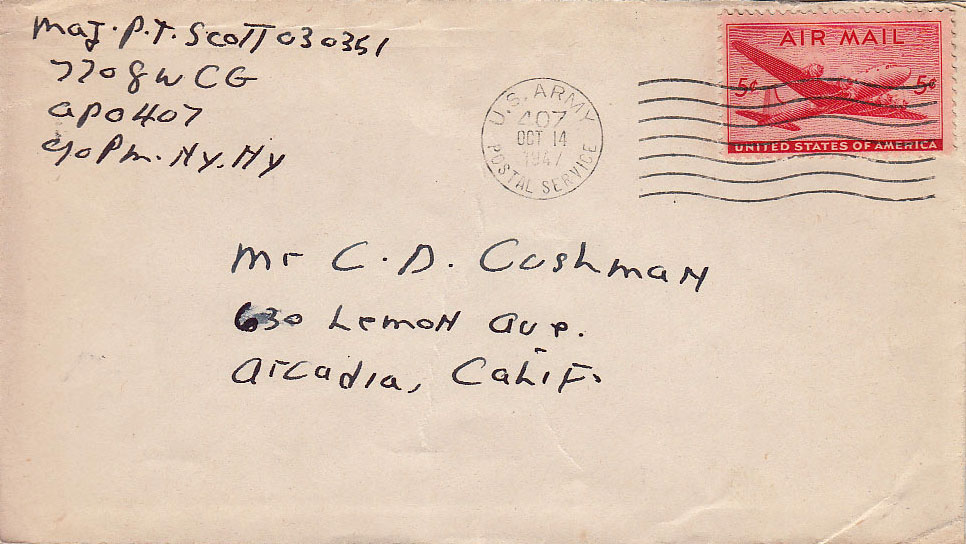 Maj. P.T. Scott 030351
7708 W C G
APO 407
c/o Pm. Ny. Ny
U.S. ARMY
407
OCT 14
1947
POSTAL SERVICE
AIR MAIL
5¢ 5¢
UNITED STATES OF AMERICA
Mr C. D. Cushman
630 Lemon Ave.
Arcadia, Calif.